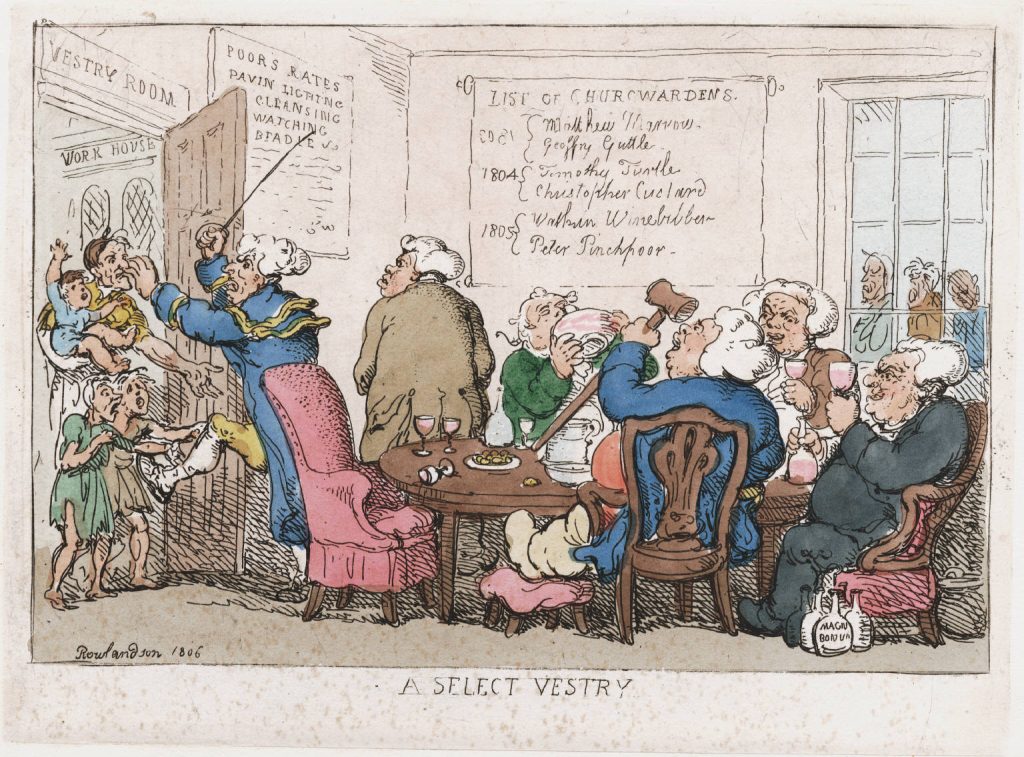 VESTRY ROOM
WORK HOUSE
POORS RATES
PAVIN LIGHTING
CLEANSING
WATCHING
BEADLE
LIST OF CHURCWARDENS.
1803 { Matthew Marrow.
Geoffry Guttle.
1804 { Timothy Turtle
Christopher Custard
1805 { Watkin Winebibber
Peter Pinchpoor.
MAGN
BONUM
Rowlandson 1806
A SELECT VESTRY